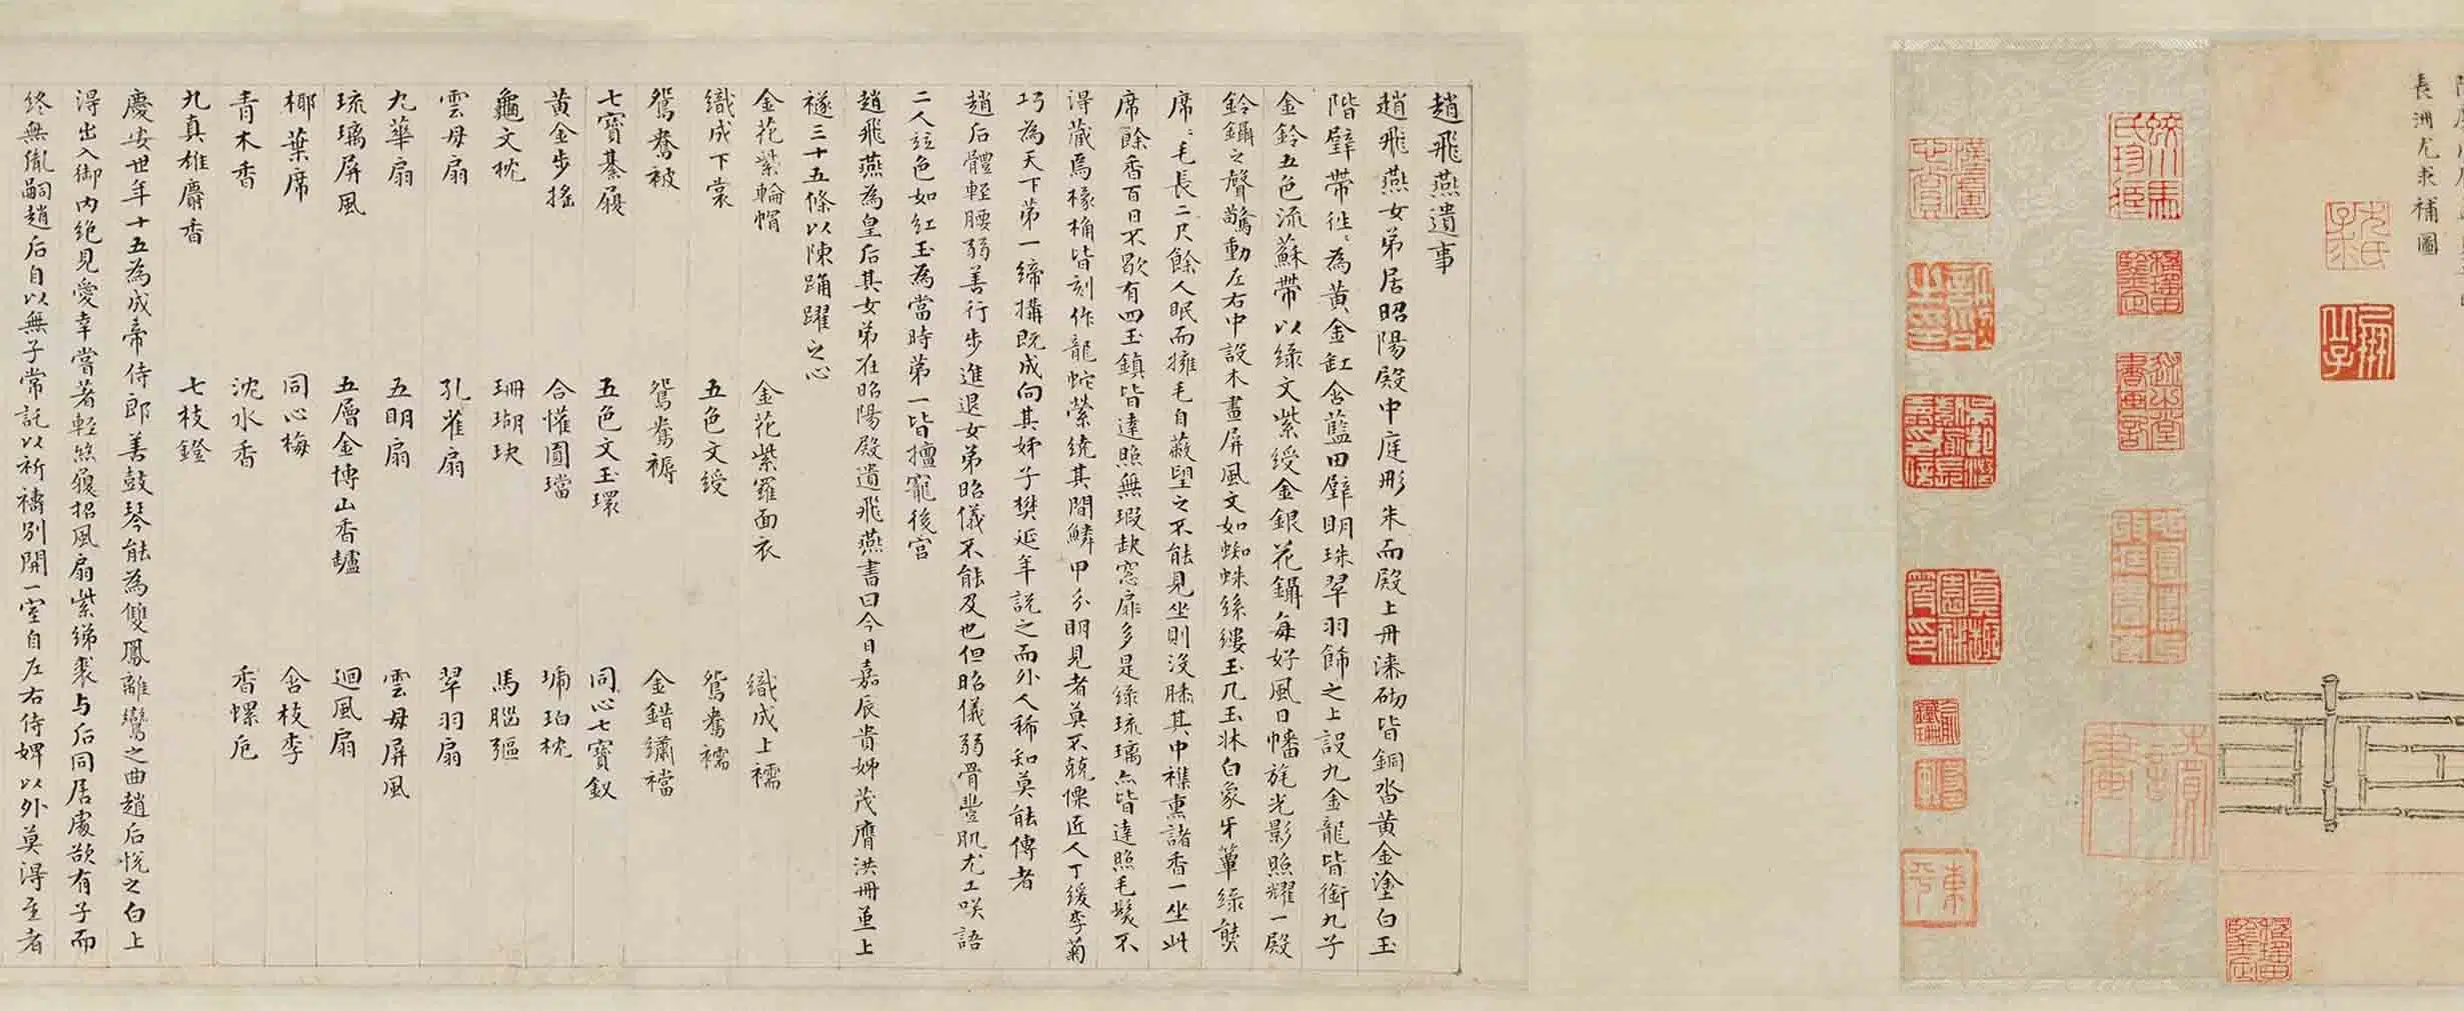 長洲尤求補圖
趙飛燕遺事
趙飛燕女弟居昭陽殿中庭彤朱而殿上丹漆砌皆銅沓黃金塗白玉
階壁帶往〻為黃金釭含藍田璧明珠翠羽飾之上設九金龍皆銜九子
金鈴五色流蘇帶以綠文紫綬金銀花鑷每好風日幡旄光影照耀一殿
鈴鑷之聲驚動左右中設木畫屏風文如蜘蛛絲縷玉几玉牀白象牙簟綠熊
席〻毛長二尺餘人眠而擁毛自蔽望之不能見坐則沒膝其中襍熏諸香一坐此
席餘香百日不歇有四玉鎮皆達照無瑕缺窓扉多是綠琉璃亦皆達照毛髮不
得藏焉椽桷皆刻作龍蛇縈繞其間鱗甲分明見者莫不兢慄匠人丁緩李菊
巧為天下第一締搆既成向其姊子樊延年説之而外人稀知莫能傳者
趙后體輕腰弱善行步進退女弟昭儀不能及也但昭儀弱骨豐肌尤工咲語
二人竝色如紅玉為當時第一皆擅寵後宮
趙飛燕為皇后其女弟在昭陽殿遺飛燕書曰今日嘉辰貴姊茂膺洪冊並上
襚三十五條以陳踊躍之心
金花紫輪帽 金花紫羅面衣 織成上襦
織成下裳 五色文綬 鴛鴦襦
鴛鴦被 鴛鴦褥 金錯繡襠
七寶綦履 五色文玉環 同心七寶釵
黃金步搖 合懽圓璫 琥珀枕
龜文枕 珊瑚玦 馬腦彄
雲母扇 孔雀扇 翠羽扇
九華扇 五明扇 雲母屏風
琉璃屏風 五層金博山香爐 迴風扇
椰葉席 同心梅 含枝李
青木香 沈水香 香螺巵
九真雄麝香 七枝鐙
慶安世年十五為成帝侍郎善鼓琴能為雙鳳離鸞之曲趙后悅之白上
得出入御內絶見愛幸嘗著輕絲履招風扇紫綈裘与后同居處欲有子而
終無胤嗣趙后自以無子常託以祈禱別開一室自左右侍婢以外莫得至者